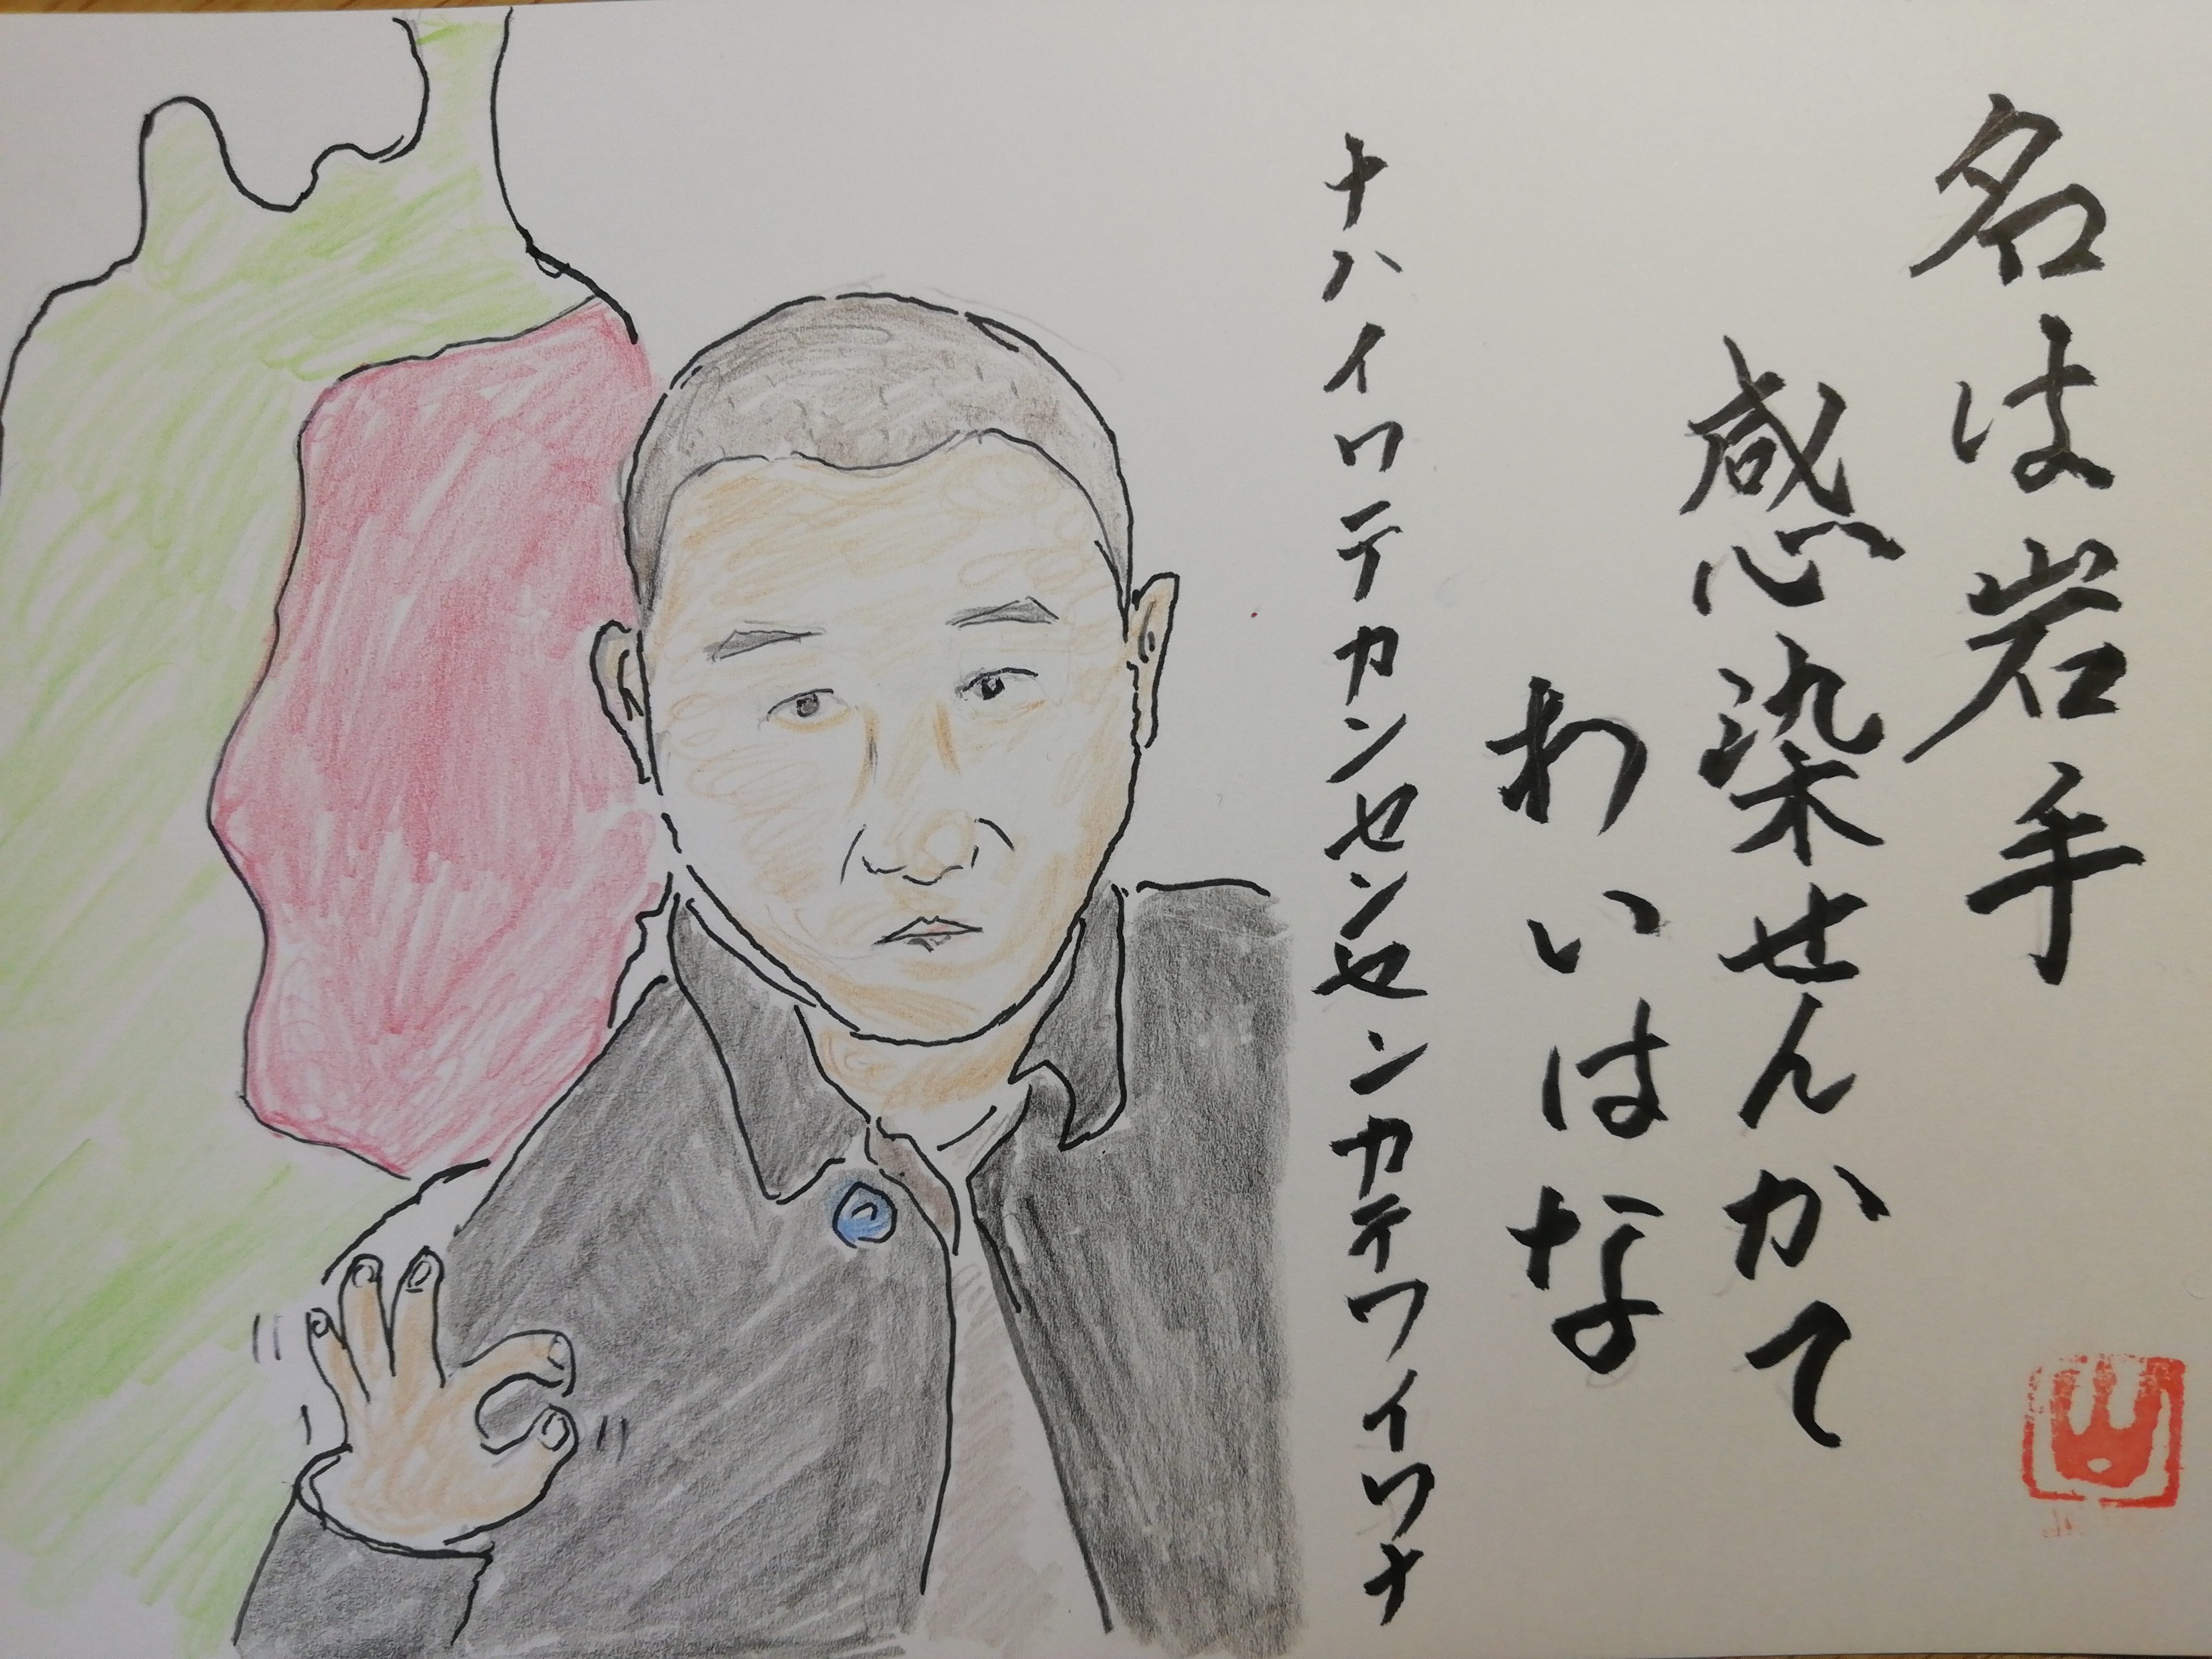 名は岩手
感染せんかて
わいはな
ナハイワテカンセンセンカテワイワナ